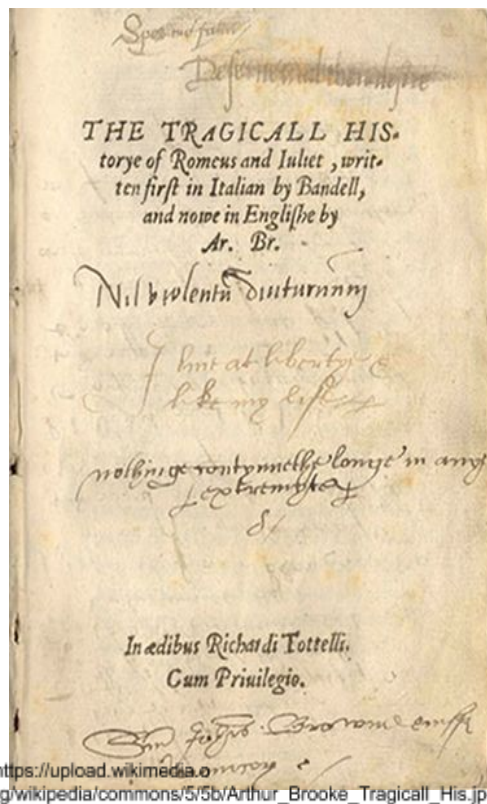 Spes me
THE TRAGICALL HIS-
torye of Romeus and Iuliet, writ-
ten first in Italian by Bandell,
and nowe in Englishe by
Ar. Br.
Nil violentū diuturnum
I liue at libertye &
like my life
nothinge contynnethe longe in anye
extremyte
In ædibus Richardi Tottelli.
Cum Priuilegio.
https://upload.wikimedia.o
g/wikipedia/commons/5/5b/Arthur_Brooke_Tragicall_His.jp